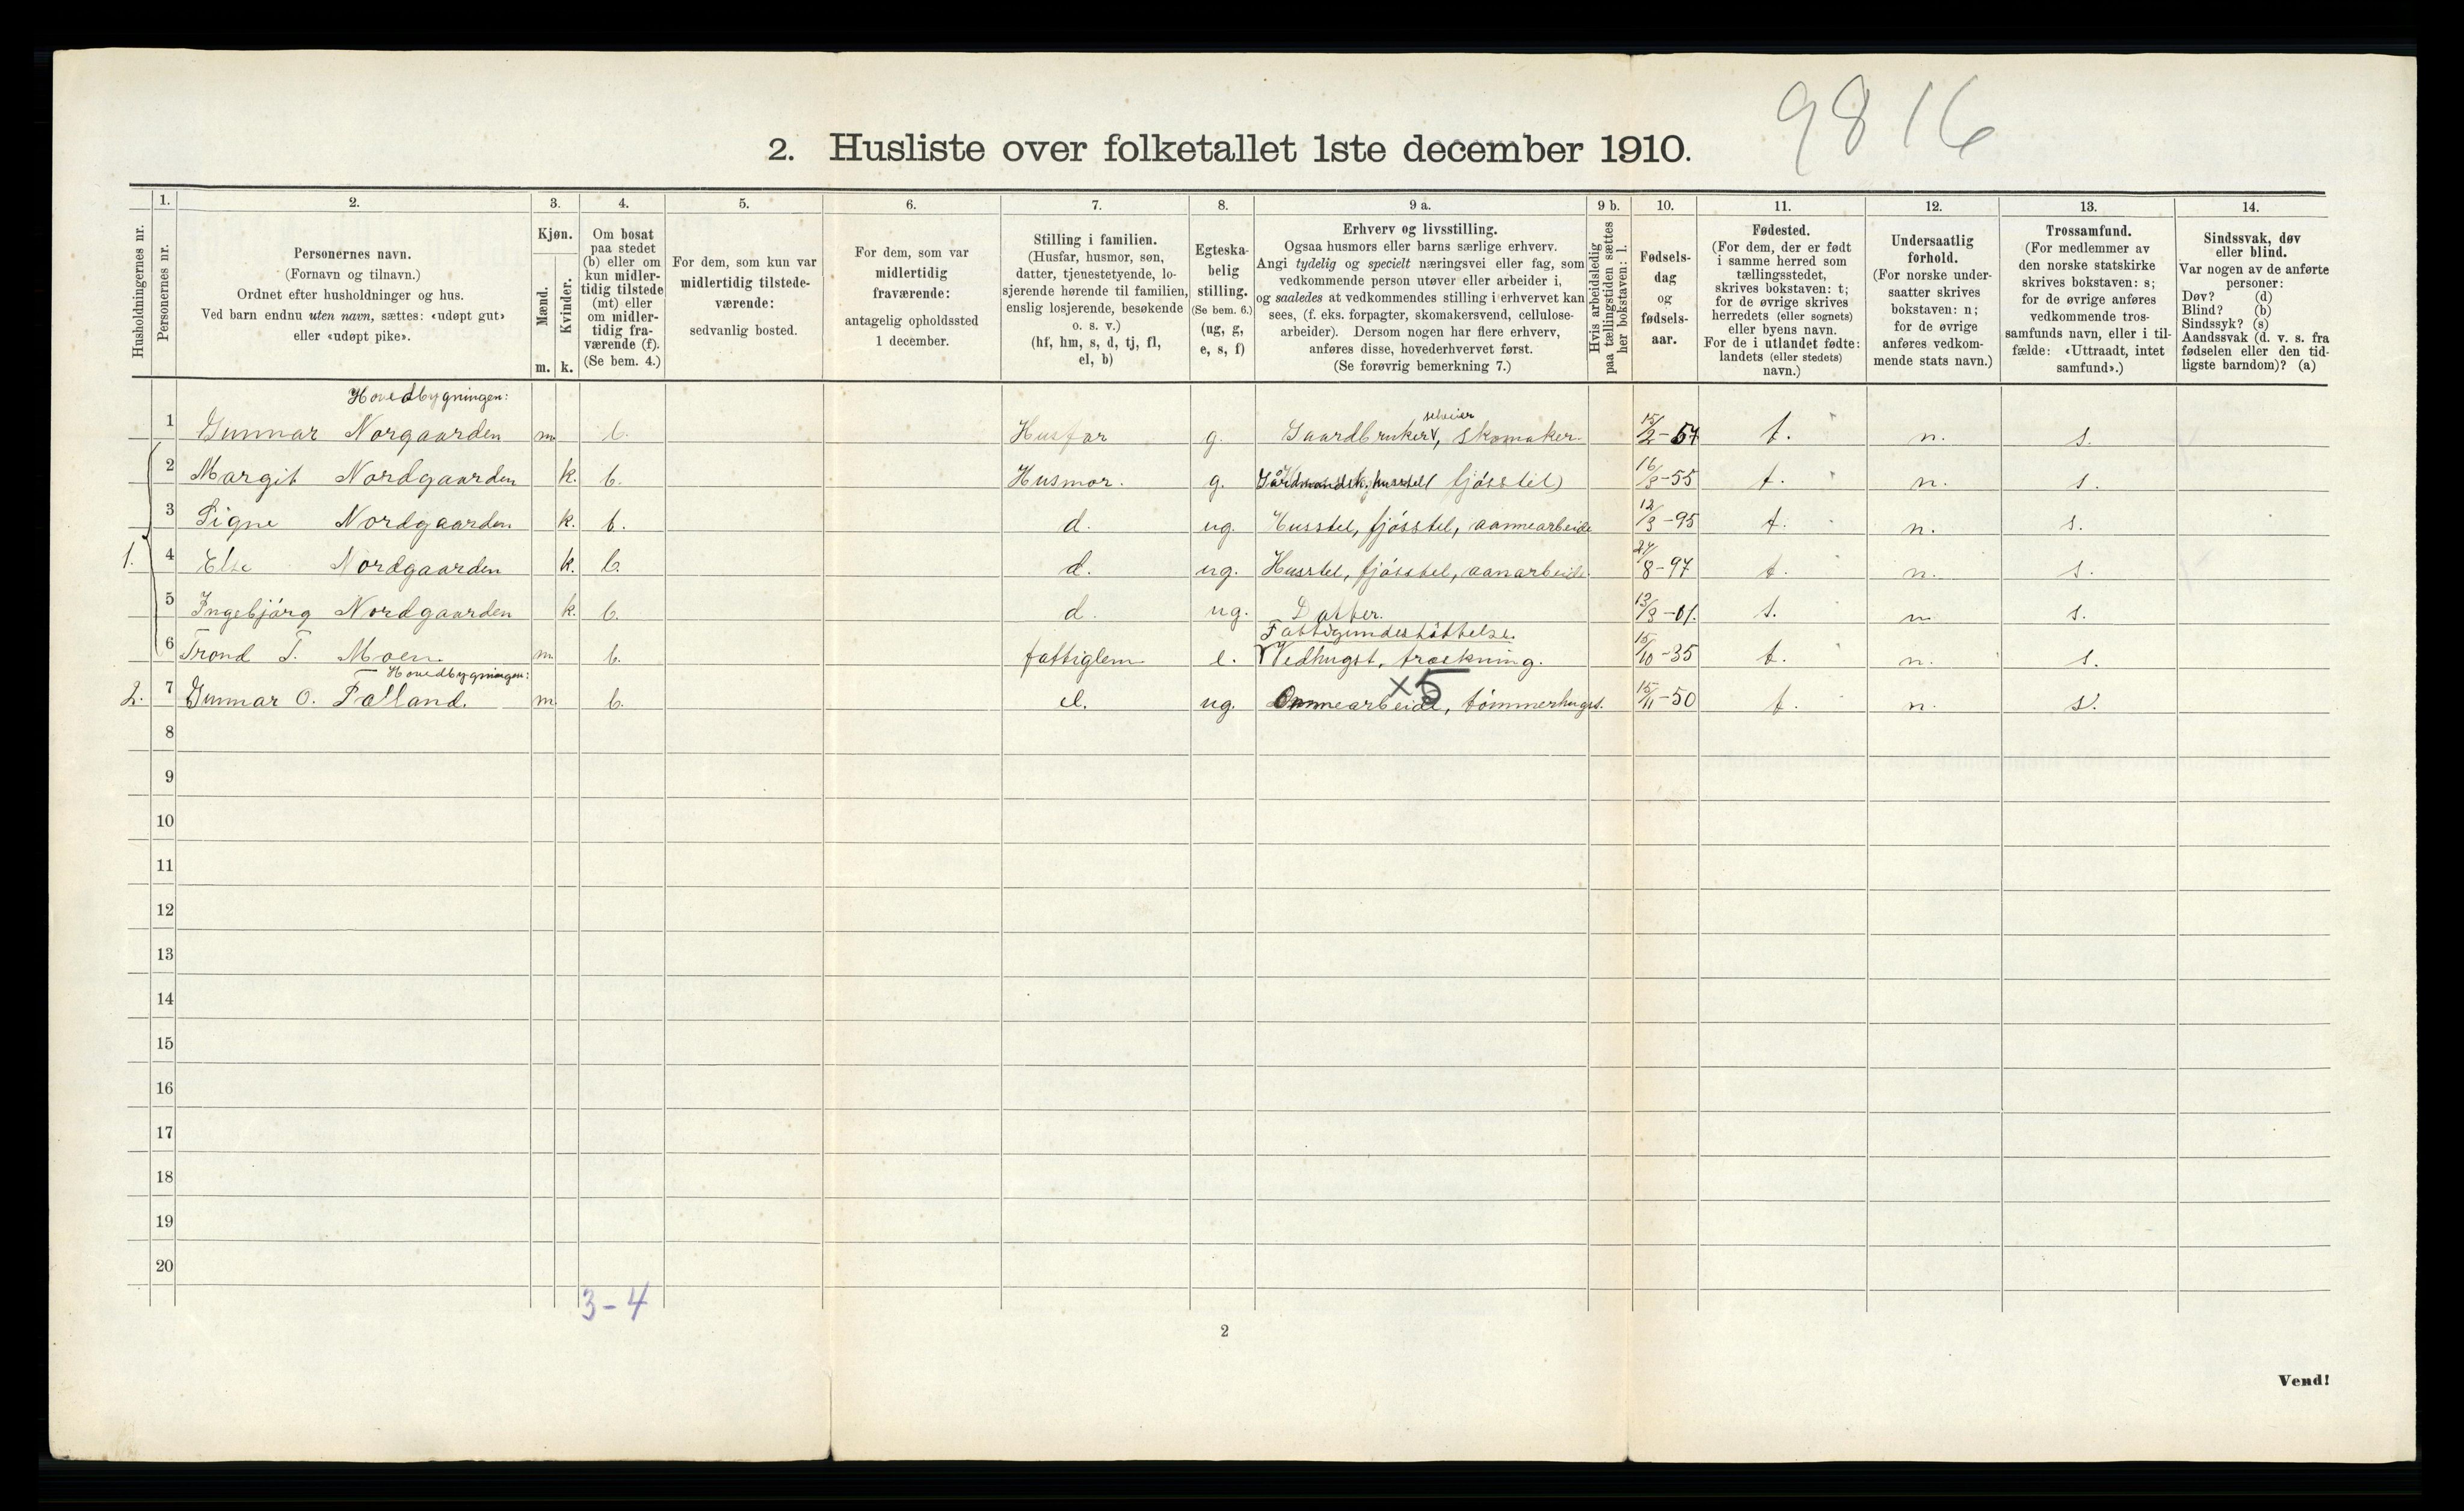 9816
2. Husliste over folketallet 1ste december 1910.
1. 2. 3. 4. 5. 6. 7. 8. 9 a. 9 b. 10. 11. 12. 13. 14.
Husholdningernes nr.
Personernes nr.
Personernes navn.
(Fornavn og tilnavn.)
Ordnet efter husholdninger og hus.
Ved barn endnu uten navn, sættes: «udøpt gut»
eller «udøpt pike».
Kjøn.
Mænd.
Kvinder.
m. k.
Om bosat
paa stedet
(b) eller om
kun midler-
tidig tilstede
(mt) eller
om midler-
tidig fra-
værende (f).
(Se bem. 4.)
For dem, som kun var
midlertidig tilstede-
værende:
sedvanlig bosted.
For dem, som var
midlertidig
fraværende:
antagelig opholdssted
1 december.
Stilling i familien.
(Husfar, husmor, søn,
datter, tjenestetyende, lo-
sjerende hørende til familien,
enslig losjerende, besøkende
o. s. v.)
(hf, hm, s, d, tj, fl,
el, b)
Egteska-
belig
stilling.
(Se bem. 6.)
(ug, g,
e, s, f)
Erhverv og livsstilling.
Ogsaa husmors eller barns særlige erhverv.
Angi tydelig og specielt næringsvei eller fag, som
vedkommende person utøver eller arbeider i,
og saaledes at vedkommendes stilling i erhvervet kan
sees, (f. eks. forpagter, skomakersvend, cellulose-
arbeider). Dersom nogen har flere erhverv,
anføres disse, hovederhvervet først.
(Se forøvrig bemerkning 7.)
Hvis arbeidsledig
paa tællingstiden sættes
her bokstaven: l.
Fødsels-
dag
og
fødsels-
aar.
Fødested.
(For dem, der er født
i samme herred som
tællingsstedet,
skrives bokstaven: t;
for de øvrige skrives
herredets (eller sognets)
eller byens navn.
For de i utlandet fødte:
landets (eller stedets)
navn.)
Undersaatlig
forhold.
(For norske under-
saatter skrives
bokstaven: n;
for de øvrige
anføres vedkom-
mende stats navn.)
Trossamfund.
(For medlemmer av
den norske statskirke
skrives bokstaven: s;
for de øvrige anføres
vedkommende tros-
samfunds navn, eller i til-
fælde: «Uttraadt, intet
samfund».)
Sindssvak, døv
eller blind.
Var nogen av de anførte
personer:
Døv? (d)
Blind? (b)
Sindssyk? (s)
Aandssvak (d. v. s. fra
fødselen eller den tid-
ligste barndom)? (a)
Hovedbygningen:
selveier
1 Gunnar Norgaarden m. b. Husfar g. Gaardbruker v, skomaker. 15/2-57 t. n. s.
2 Margit Nordgaarden k. b. Husmor. g. fjósstel) 16/8-55 t. n. s.
3 Signe Nordgaarden k. b. d. ug. Husstel, fjósstel, aannearbeide 12/3-95 t. n. s.
1. 4 Else Nordgaarden k. b. d. ug. Husstel, fjósstel, aanarbeide. 24/8-97 t. n. s.
5 Ingebjórg Nordgaarden k. b. d. ug. Datter. 13/3-01. t. n. s.
Fattigunderstóttelse.
6 Trond T. Moen. m. b. fattiglem e. Vedhugst, trækning. 15/10-35 t. n. s.
Hovedbygningen:
×5
2. 7 Gunnar O. Palland. m. b. el. ug. Onnearbeide, tómmerhugst. 15/11-50 t. n. s.
8
9
10
11
12
13
14
15
16
17
18
19
20
3-4
2
Vend!